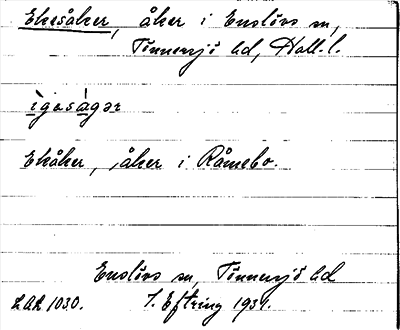 Ekesåker, åker i Enslövs sn,
Tönnersjö hd, Hall. l.
ìgəságər
Ekåker, åker i Råmebo.
Enslövs sn, Tönnersjö hd
LAL 1030. T. Eftring 1931.